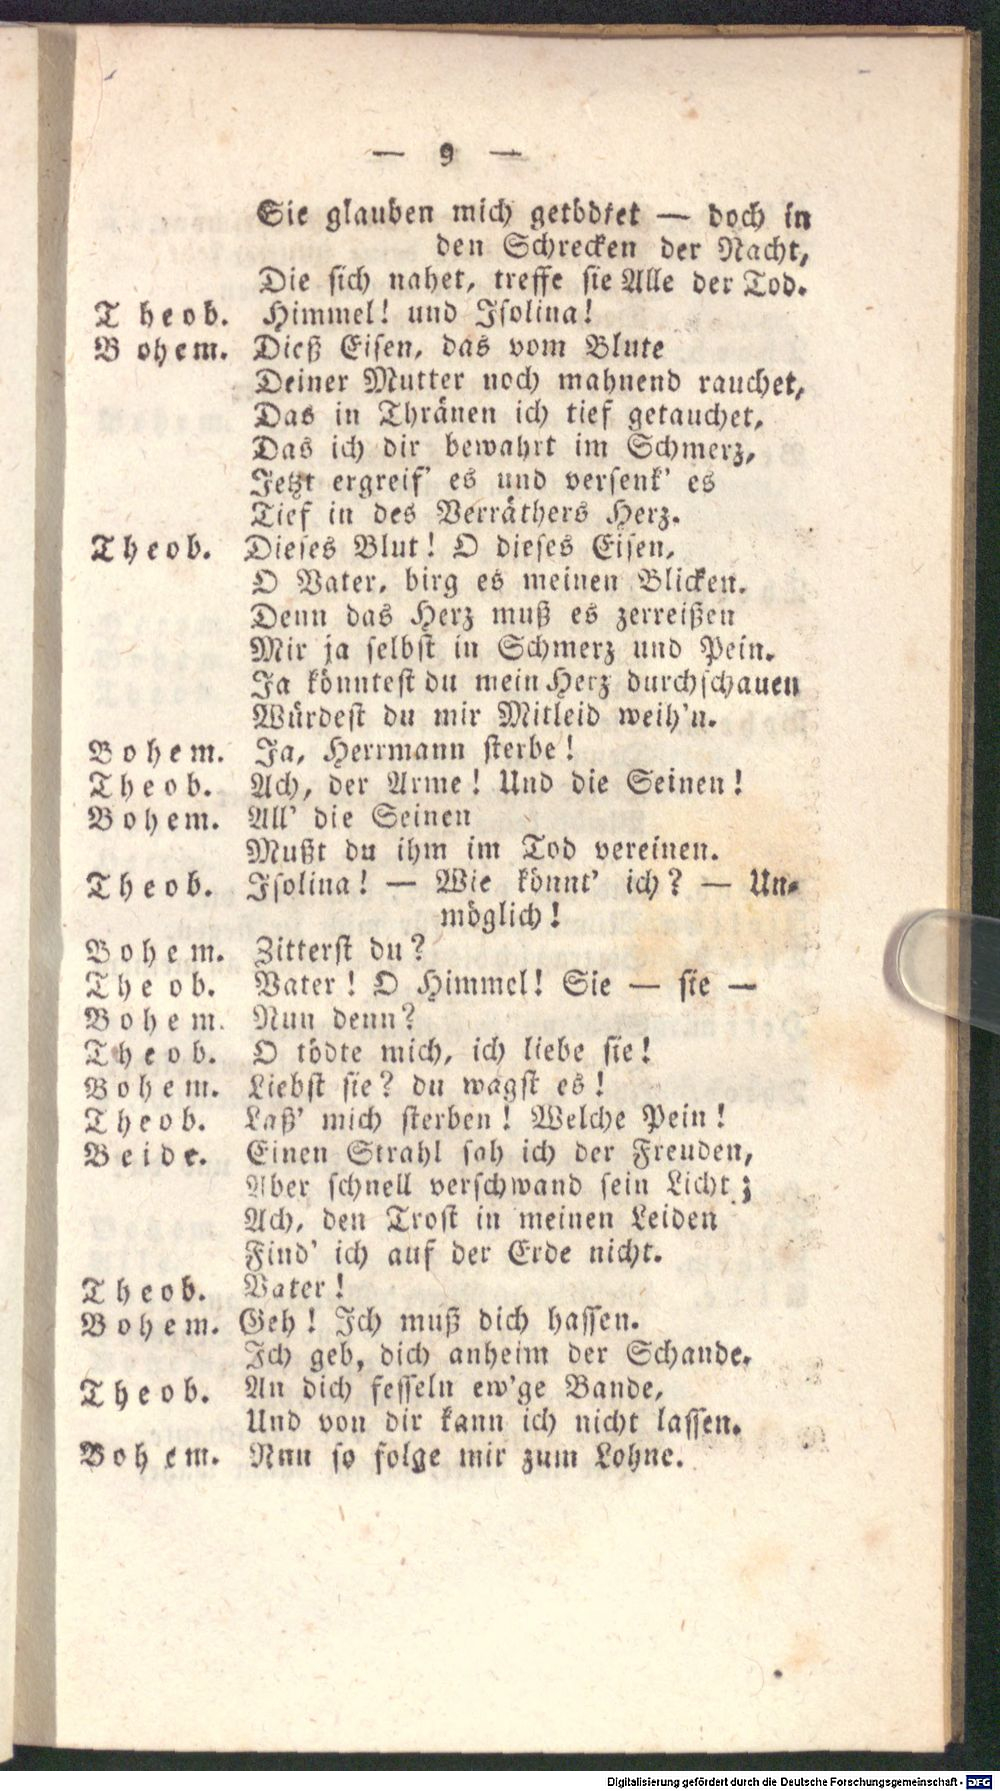 — 9 —
Sie glauben mich getödtet — doch in
den Schrecken der Nacht,
Die sich nahet, treffe sie Alle der Tod.
Theob. Himmel! und Isolina!
Bohem. Dieß Eisen, das vom Blute
Deiner Mutter noch mahnend rauchet,
Das in Thränen ich tief getauchet,
Das ich dir bewahrt im Schmerz,
Jetzt ergreif' es und versenk' es
Tief in des Verräthers Herz.
Theob. Dieses Blut! O dieses Eisen,
O Vater, birg es meinen Blicken.
Denn das Herz muß es zerreißen
Mir ja selbst in Schmerz und Pein.
Ja könntest du mein Herz durchschauen
Würdest du mir Mitleid weih'n.
Bohem. Ja, Herrmann sterbe!
Theob. Ach, der Arme! Und die Seinen!
Bohem. All' die Seinen
Mußt du ihm im Tod vereinen.
Theob. Isolina! — Wie könnt' ich? — Un-
möglich!
Bohem. Zitterst du?
Theob. Vater! O Himmel! Sie — sie —
Bohem. Nun denn?
Theob. O tödte mich, ich liebe sie!
Bohem. Liebst sie? du wagst es!
Theob. Laß' mich sterben! Welche Pein!
Beide. Einen Strahl sah ich der Freuden,
Aber schnell verschwand sein Licht;
Ach, den Trost in meinen Leiden
Find' ich auf der Erde nicht.
Theob. Vater!
Bohem. Geh! Ich muß dich hassen.
Ich geb, dich anheim der Schande.
Theob. An dich fesseln ew'ge Bande,
Und von dir kann ich nicht lassen.
Bohem. Nun so folge mir zum Lohne.
Digitalisierung gefördert durch die Deutsche Forschungsgemeinschaft - DFG